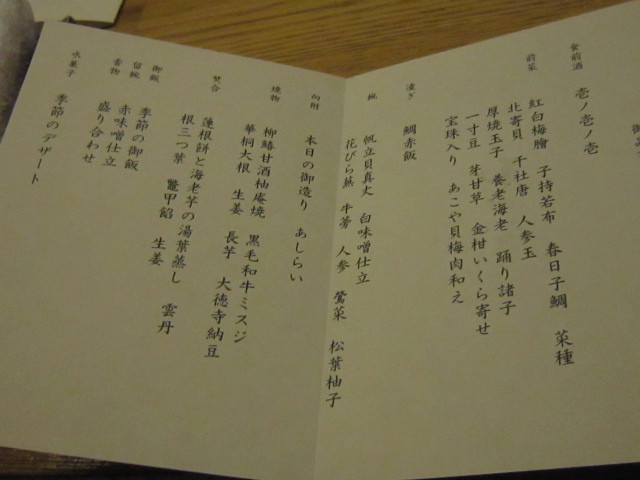 食前酒
壱ノ壱ノ壱
前菜
紅白梅膾 子持若布 春日子鯛 菜種
北寄貝 千社唐 人参玉
厚焼玉子 養老海老 踊り諸子
一寸豆 芽甘草 金柑いくら寄せ
宝珠入り あこや貝梅肉和え
凌ぎ
鯛赤飯
椀
帆立貝真丈 白味噌仕立
花びら蕪 牛蒡 人参 鶯菜 松葉柚子
向附
本日の御造り あしらい
焼物
柳鰆甘酒柚庵焼 黒毛和牛ミスジ
華桐大根 生姜 長芋 大徳寺納豆
焚合
蓮根餅と海老芋の湯葉蒸し 雲丹
根三つ葉 鼈甲餡 生姜
御飯
季節の御飯
留椀
赤味噌仕立
香物
盛り合わせ
水菓子
季節のデザート